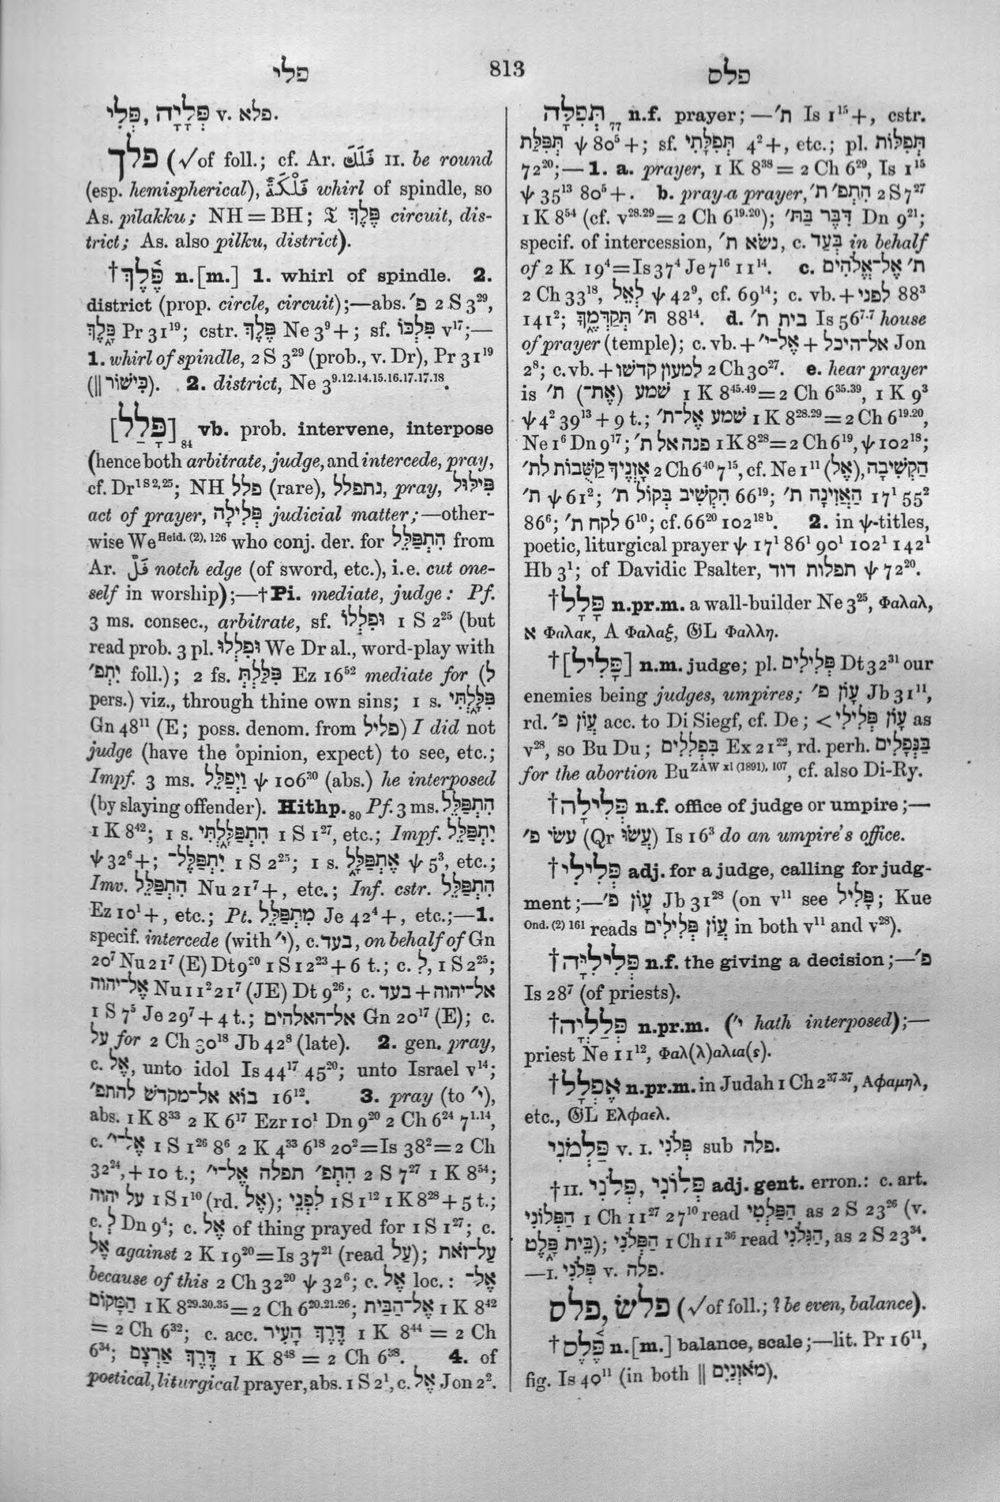 פלי
813
פלס
פְּלִיָּה, פְּלִי v. פלא.
פלך (√of foll.; cf. Ar. فَلَكَ II. be round
(esp. hemispherical), فَلْكَةٌ whirl of spindle, so
As. pilakku; NH = BH; 𝔗 פֶּלֶךְ circuit, dis-
trict; As. also pilku, district).
†פֶּ֫לֶךְ n.[m.] 1. whirl of spindle. 2.
district (prop. circle, circuit);—abs. פ׳ 2 S 3²⁹,
פָּלֶךְ Pr 31¹⁹; cstr. פֶּלֶךְ Ne 3⁹+; sf. פִּלְכּוֹ v¹⁷;—
1. whirl of spindle, 2 S 3²⁹ (prob., v. Dr), Pr 31¹⁹
(∥ כִּישׁוֹר). 2. district, Ne 3⁹·¹²·¹⁴·¹⁵·¹⁶·¹⁷·¹⁷·¹⁸.
[פָּלַל]₈₄ vb. prob. intervene, interpose
(hence both arbitrate, judge, and intercede, pray,
cf. Dr¹ ˢ ²,²⁵; NH פלל (rare), נתפלל, pray, פִּילּוּל
act of prayer, פְּלִילָה judicial matter;—other-
wise We ᴴᵉⁱᵈ· ⁽²⁾, ¹²⁶ who conj. der. for הִתְפַּלֵּל from
Ar. فَلَّ notch edge (of sword, etc.), i.e. cut one-
self in worship);—†Pi. mediate, judge: Pf.
3 ms. consec., arbitrate, sf. וּפִלְלוֹ 1 S 2²⁵ (but
read prob. 3 pl. וּפִלְלוּ We Dr al., word-play with
יִתְפּ׳ foll.); 2 fs. פִּלַּלְתְּ Ez 16⁵² mediate for (לְ
pers.) viz., through thine own sins; 1 s. פִּלָּלְתִּי
Gn 48¹¹ (E; poss. denom. from פליל) I did not
judge (have the opinion, expect) to see, etc.;
Impf. 3 ms. וַיְפַלֵּל ψ 106³⁰ (abs.) he interposed
(by slaying offender). Hithp.₈₀ Pf. 3 ms. הִתְפַּלֵּל
1 K 8⁴²; 1 s. הִתְפַּלָּלְתִּי 1 S 1²⁷, etc.; Impf. יִתְפַּלֵּל
ψ 32⁶+; יִתְפַּלֶּל־ 1 S 2²⁵; 1 s. אֶתְפַּלָּל ψ 5³, etc.;
Imv. הִתְפַּלֵּל Nu 21⁷+, etc.; Inf. cstr. הִתְפַּלֵּל
Ez 10¹+, etc.; Pt. מִתְפַּלֵּל Je 42⁴+, etc.;—1.
specif. intercede (with י׳), c. בעד, on behalf of Gn
20⁷ Nu 21⁷ (E) Dt 9²⁰ 1 S 12²³+6 t.; c. לְ, 1 S 2²⁵;
אֶל־יהוה Nu 11² 21⁷ (JE) Dt 9²⁶; c. אל־יהוה+בעד
1 S 7⁵ Je 29⁷+4 t.; אל־האלהים Gn 20¹⁷ (E); c.
על for 2 Ch 30¹⁸ Jb 42⁸ (late). 2. gen. pray,
c. אֶל, unto idol Is 44¹⁷ 45²⁰; unto Israel v¹⁴;
בוא אל־מקדש להתפ׳ 16¹². 3. pray (to י׳),
abs. 1 K 8³³ 2 K 6¹⁷ Ezr 10¹ Dn 9²⁰ 2 Ch 6²⁴ 7¹·¹⁴,
c. אֶל־י׳ 1 S 1²⁶ 8⁶ 2 K 4³³ 6¹⁸ 20²=Is 38²=2 Ch
32²⁴,+10 t.; התפ׳ תפלה אל־י׳ 2 S 7²⁷ 1 K 8⁵⁴;
על יהוה 1 S 1¹⁰ (rd. אֶל); לִפְנֵי 1 S 1¹² 1 K 8²⁸+5 t.;
c. לְ Dn 9⁴; c. אֶל of thing prayed for 1 S 1²⁷; c.
אֶל against 2 K 19²⁰=Is 37²¹ (read עַל); עַל־זֹאת
because of this 2 Ch 32²⁰ ψ 32⁶; c. אֶל loc.: אֶל־
הַמָּקוֹם 1 K 8²⁹·³⁰·³⁵=2 Ch 6²⁰·²¹·²⁶; אֶל־הַבַּיִת 1 K 8⁴²
=2 Ch 6³²; c. acc. דֶּרֶךְ הָעִיר 1 K 8⁴⁴ = 2 Ch
6³⁴; דֶּרֶךְ אַרְצָם 1 K 8⁴⁸ = 2 Ch 6³⁸. 4. of
poetical, liturgical prayer, abs. 1 S 2¹, c. אֶל Jon 2².
תְּפִלָּה₇₇ n.f. prayer;—ת׳ Is 1¹⁵+, cstr.
תְּפִלַּת ψ 80⁵+; sf. תְּפִלָּתִי 4²+, etc.; pl. תְּפִלּוֹת
72²⁰;—1. a. prayer, 1 K 8³⁸=2 Ch 6²⁹, Is 1¹⁵
ψ 35¹³ 80⁵+. b. pray a prayer, הִתְפּ׳ ת׳ 2 S 7²⁷
1 K 8⁵⁴ (cf. v²⁸·²⁹=2 Ch 6¹⁹·²⁰); דִּבֶּר בַּתּ׳ Dn 9²¹;
specif. of intercession, נשׂא ת׳, c. בְּעַד in behalf
of 2 K 19⁴=Is 37⁴ Je 7¹⁶ 11¹⁴. c. ת׳ אֶל־אֱלֹהִים
2 Ch 33¹⁸, לְאֵל ψ 42⁹, cf. 69¹⁴; c. vb.+לִפְנֵי 88³
141²; תּ׳ תְּקַדְּמֶךָּ 88¹⁴. d. בית ת׳ Is 56⁷·⁷ house
of prayer (temple); c. vb.+אֶל־י׳+אל־היכל Jon
2⁸; c. vb.+למעון קדשו 2 Ch 30²⁷. e. hear prayer
is שמע (את־) ת׳ 1 K 8⁴⁵·⁴⁹=2 Ch 6³⁵·³⁹, 1 K 9³
ψ 4² 39¹³+9 t.; שמע אֶל־ת׳ 1 K 8²⁸·²⁹=2 Ch 6¹⁹·²⁰,
Ne 1⁶ Dn 9¹⁷; פנה אל ת׳ 1 K 8²⁸=2 Ch 6¹⁹, ψ 102¹⁸;
אָזְנֶיךָ קַשֻּׁבוֹת לת׳ 2 Ch 6⁴⁰ 7¹⁵, cf. Ne 1¹¹ (אֶל), הַקְשִׁיבָה
ת׳ ψ 61²; הִקְשִׁיב בְּקוֹל ת׳ 66¹⁹; הַאֲזִינָה ת׳ 17¹ 55²
86⁶; לקח ת׳ 6¹⁰; cf. 66²⁰ 102¹⁸ᵇ. 2. in ψ-titles,
poetic, liturgical prayer ψ 17¹ 86¹ 90¹ 102¹ 142¹
Hb 3¹; of Davidic Psalter, תפלות דוד ψ 72²⁰.
†פָּלָל n.pr.m. a wall-builder Ne 3²⁵, Φαλαλ,
א Φαλακ, A Φαλαξ, 𝔊L Φαλλη.
†[פָּלִיל] n.m. judge; pl. פְּלִילִים Dt 32³¹ our
enemies being judges, umpires; עָוֺן פ׳ Jb 31¹¹,
rd. עֲוֺן פ׳ acc. to Di Siegf, cf. De; < עָוֺן פְּלִילִי as
v²⁸, so Bu Du; בִּפְלִלִים Ex 21²², rd. perh. בַּנְּפָלִים
for the abortion Bu ᶻᴬᵂ ˣⁱ ⁽¹⁸⁹¹⁾, ¹⁰⁷, cf. also Di-Ry.
†פְּלִילָה n.f. office of judge or umpire;—
עשׂי פ׳ (Qr עֲשׂוֹ) Is 16³ do an umpire's office.
†פְּלִילִי adj. for a judge, calling for judg-
ment;—עָוֺן פ׳ Jb 31²⁸ (on v¹¹ see פָּלִיל; Kue
ᴼⁿᵈ· ⁽²⁾ ¹⁶¹ reads עֲוֺן פְּלִילִים in both v¹¹ and v²⁸).
†פְּלִילִיָּה n.f. the giving a decision;—פ׳
Is 28⁷ (of priests).
†פְּלַלְיָה n.pr.m. (י׳ hath interposed);—
priest Ne 11¹², Φαλ(λ)αλια(ς).
†אֶפְלָל n.pr.m. in Judah 1 Ch 2³⁷·³⁷, Αφαμηλ,
etc., 𝔊L Ελφαελ.
פַּלְמֹנִי v. I. פְּלֹנִי sub פלה.
†II. פְּלוֹנִי, פְּלֹנִי adj. gent. erron.: c. art.
הַפְּלוֹנִי 1 Ch 11²⁷ 27¹⁰ read הַפַּלְטִי as 2 S 23²⁶ (v.
בֵּית פָּלֶט); הַפְּלֹנִי 1 Ch 11³⁶ read הַגִּלֹנִי, as 2 S 23³⁴.
—I. פְּלֹנִי v. פלה.
פלשׂ, פלס (√of foll.; ? be even, balance).
†פֶּ֫לֶס n.[m.] balance, scale;—lit. Pr 16¹¹,
fig. Is 40¹¹ (in both ∥ מֹאזְנַיִם).